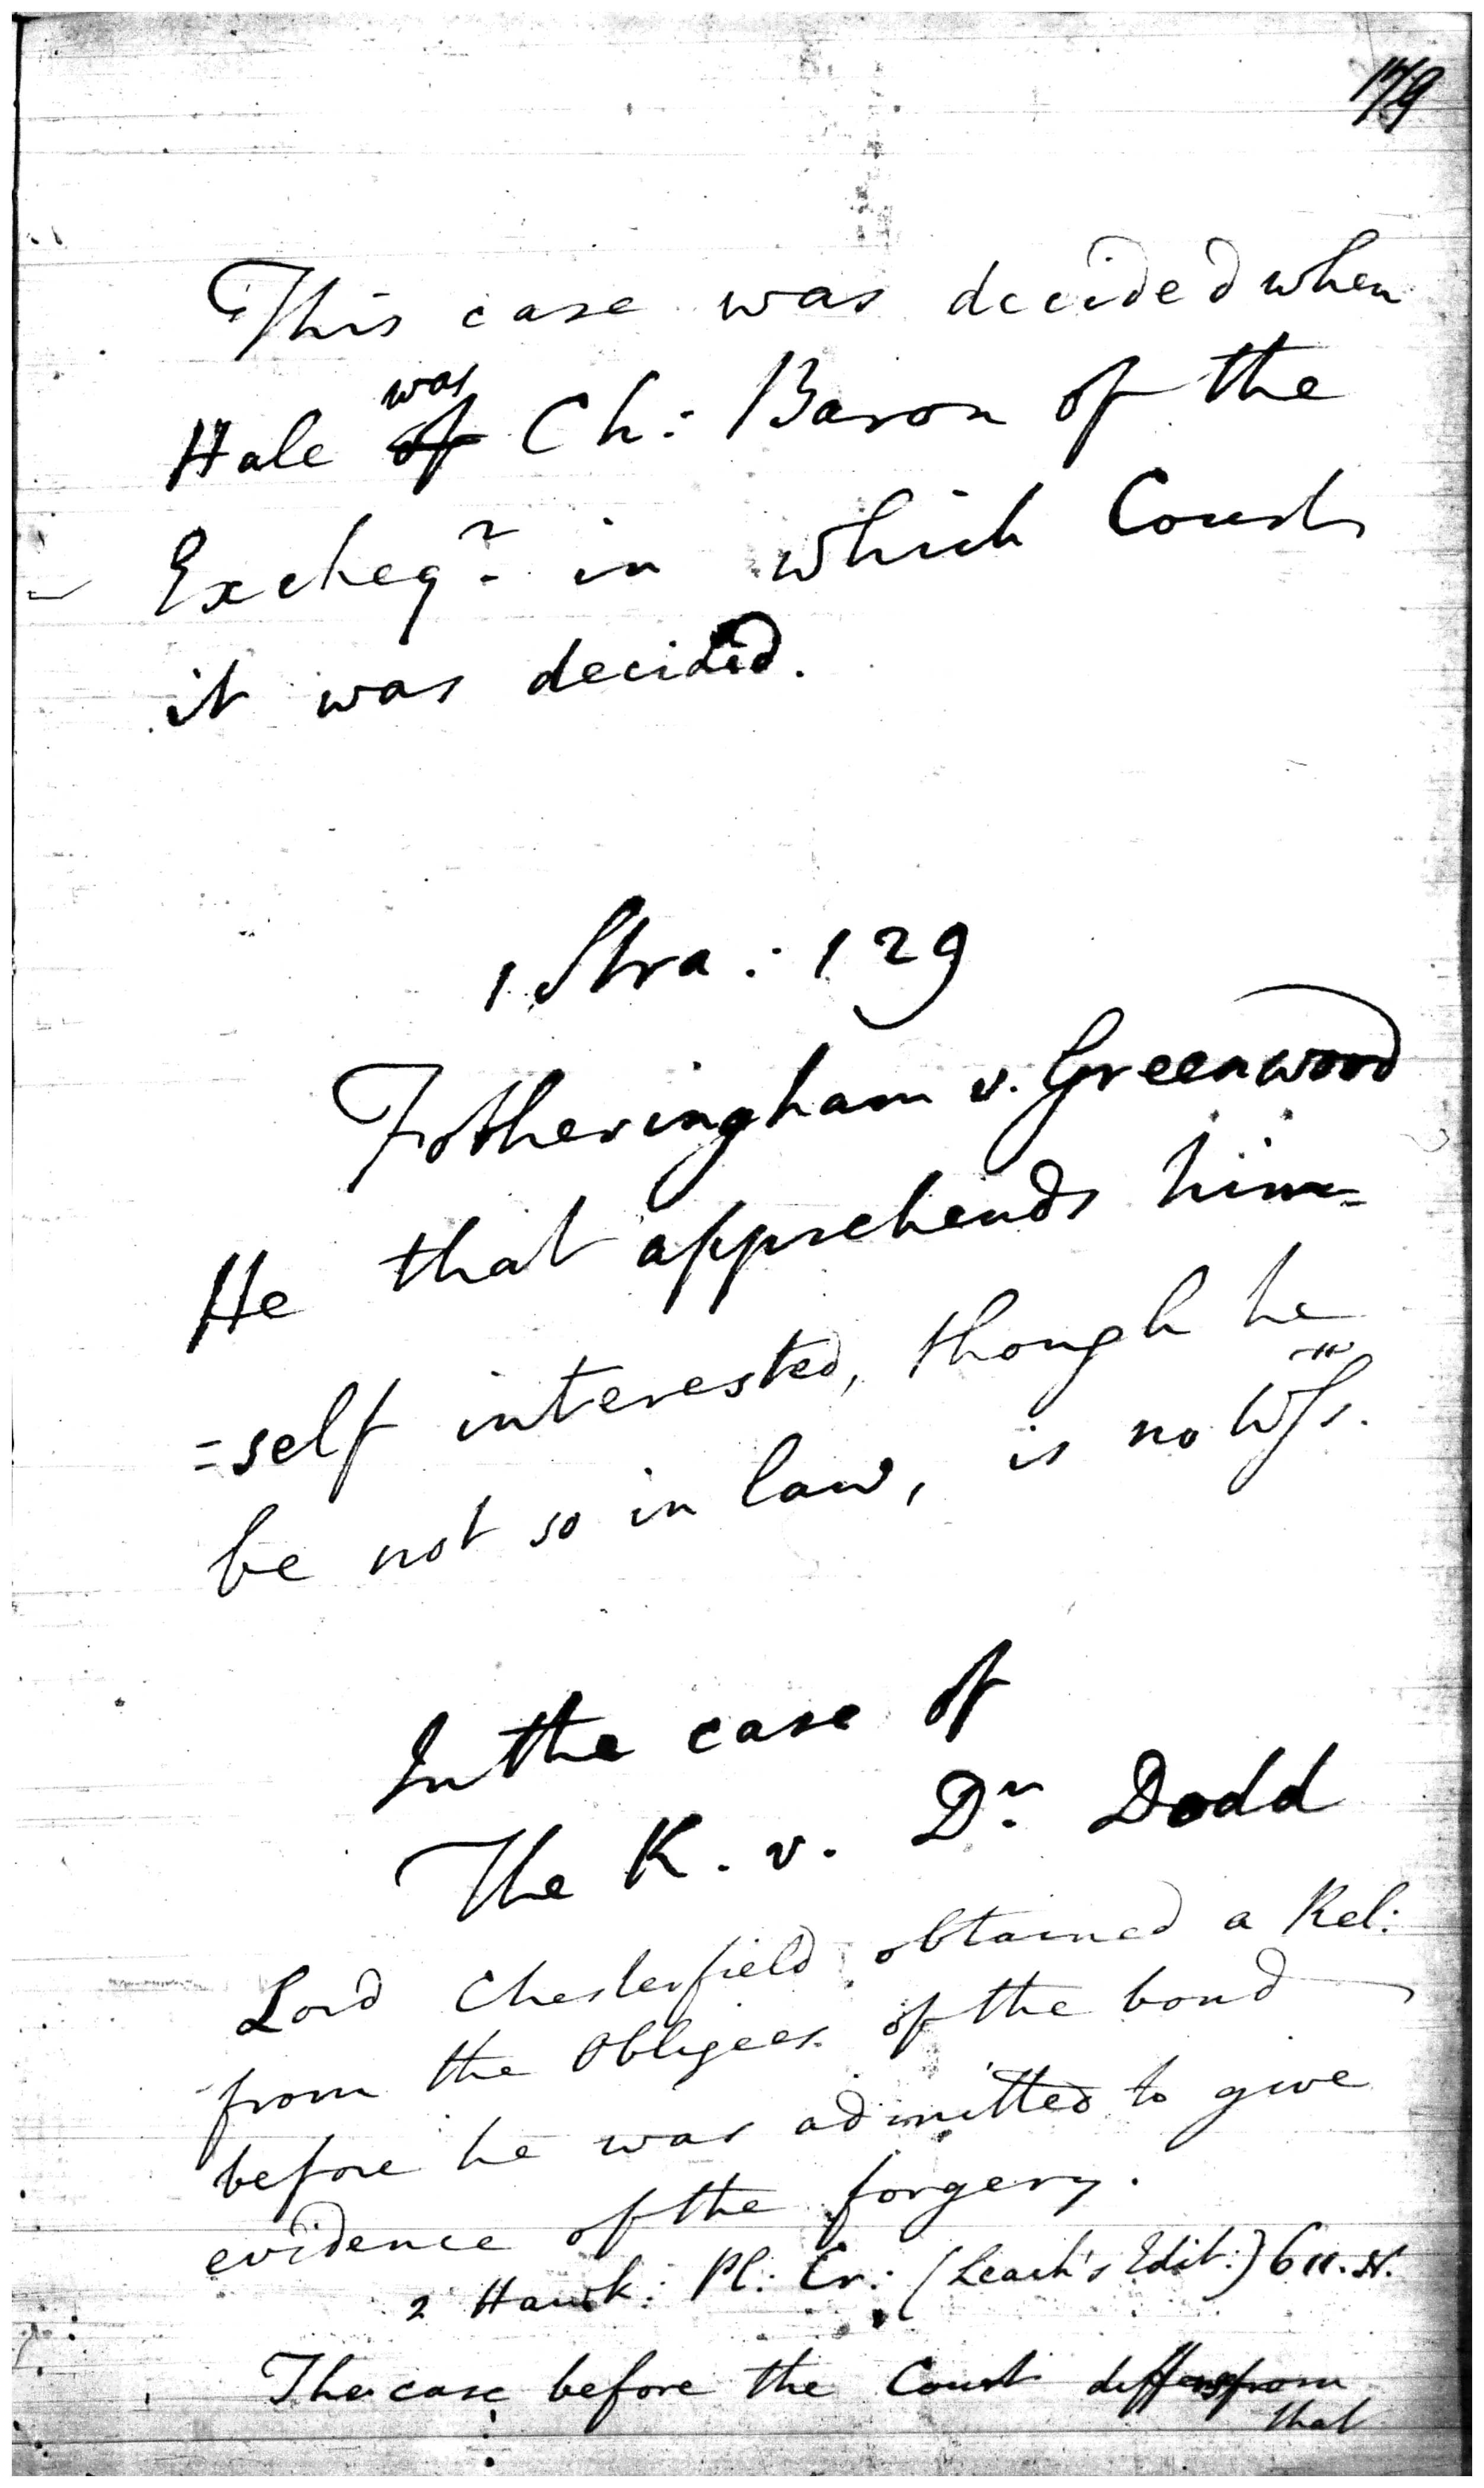 179
This case was decided when
was
Hale of Ch: Baron of the
Excheqr. in which Court
it was decided.
1 Stra: 129
Fotheringham v. Greenwood
He that apprehends him=
=self interested, though he
be not so in law, is no Wss.
In the case of
The K. v. Dr. Dodd
Lord Chesterfield obtained a Rel:
from the Obligees of the bond
before he was admitted to give
evidence of the forgery.
2 Hawk: Pl: Cr: (Leach's Edit:) 611. N.
The case before the Court differs from
that